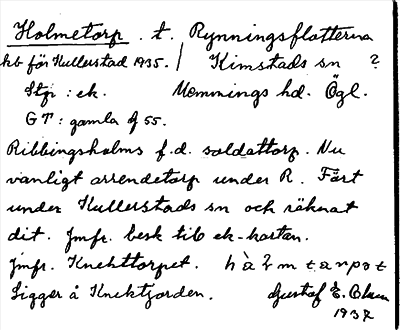 Holmetorp. t. Rynningsflotterna
kb för Kullerstad 1935. / Kimstads sn ?
Stp : ek. Memmings hd. Ögl.
GT: gamla 55.
Ribbingsholms f.d. soldattorp. Nu
vanligt arrendetorp under R. Fört
under Kullerstads sn och räknat
dit. Jmfr. besk till ek-kartan.
Jmfr. Knekttorpet.
Ligger å Knektjorden. Gustaf E. Olsson
1937